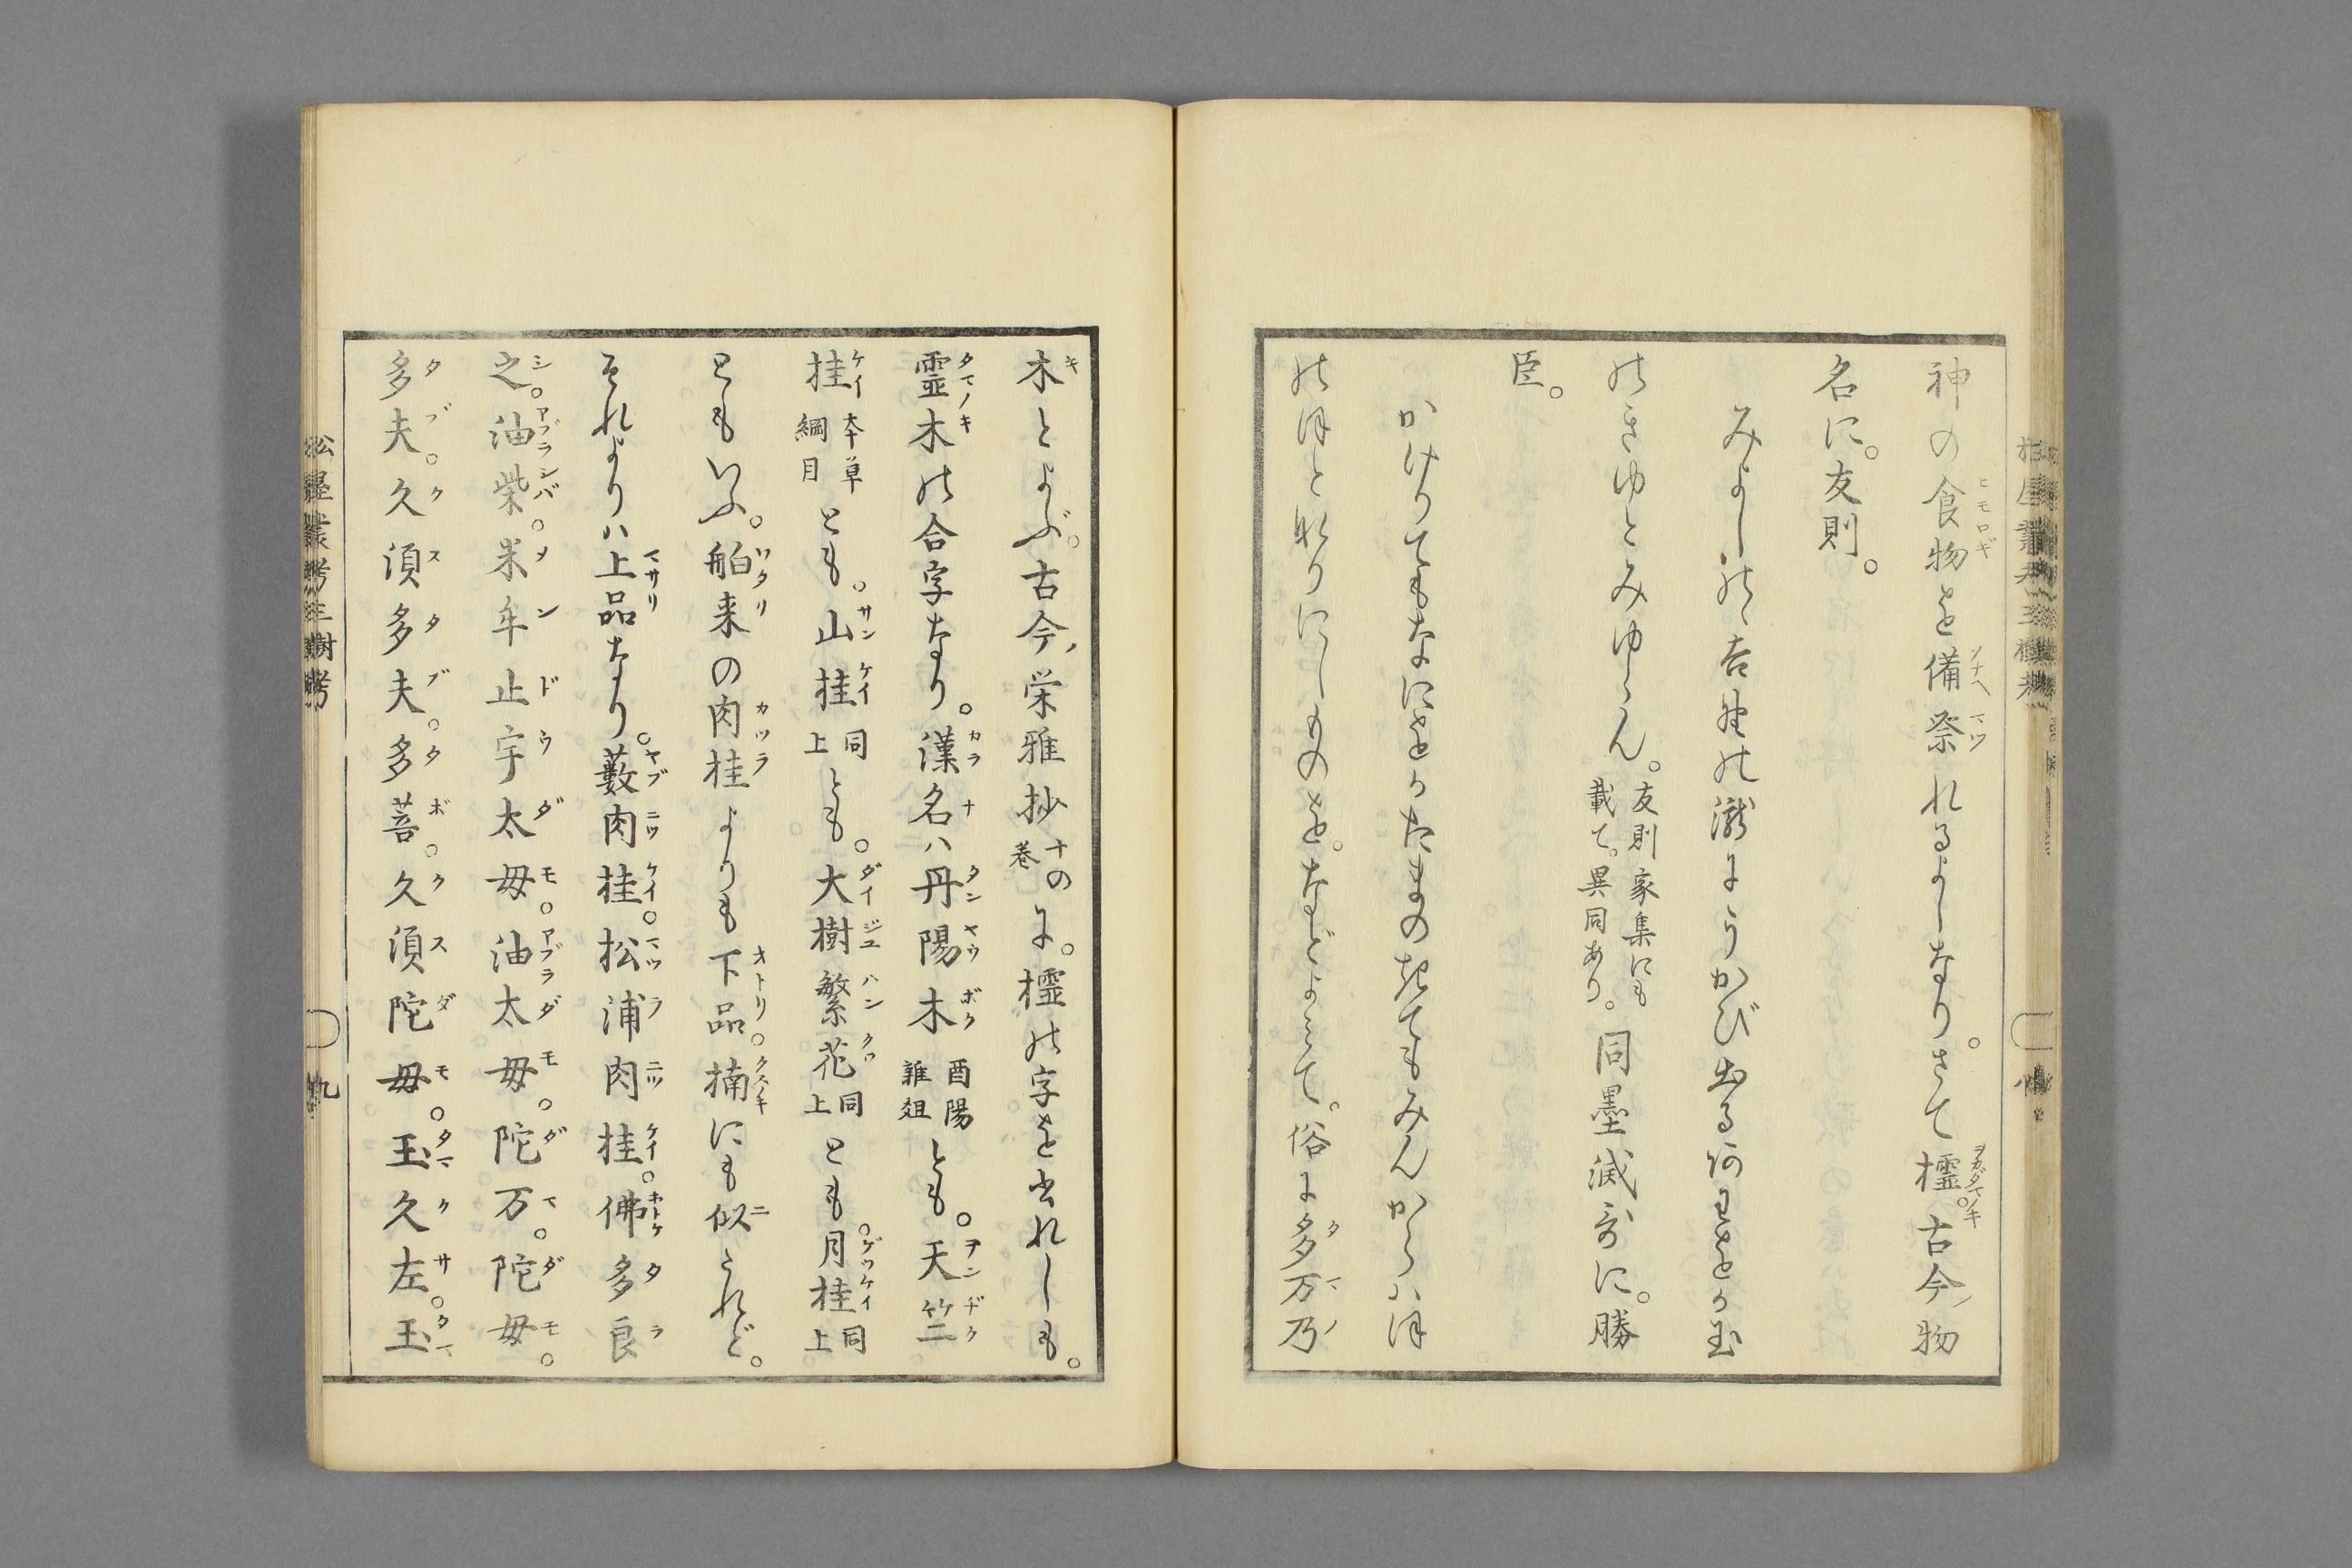 神の食物を備祭れるよしなり。さて櫺。古今物
名に。友則。
みよし野の吉野の瀧にうかび出る泡をか玉
のきゆとみゆらん。友則家集にも載て。異同あり。同墨滅哥に。勝
臣。
かけりてもなにをかたまのきてもみんからはほ
のほとなりにしものを。などよみて。俗に多万乃
木とよぶ。古今栄雅抄十の巻に。櫺の字を出れしも。
霊木の合字なり。漢名ハ丹陽木酉陽雜俎とも。天竺
桂本草綱目とも。山桂同上とも。大樹繁花同上とも。月桂同上
ともいふ。舶来の肉桂よりも下品。楠にも似たれど。
それよりハ上品なり。藪肉桂。松浦肉桂。佛多良
之。油柴。米牟止宇太毋。油太毋。陀万。陀毋。
多夫。久須多夫。多菩。久須陀毋。玉久左。玉
松屋叢考 三樹考
九